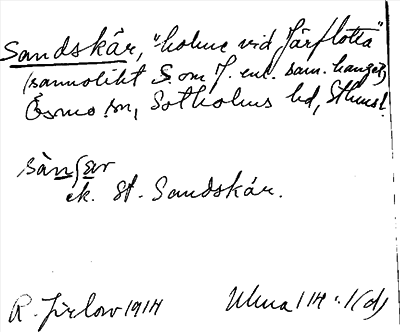 Sandskär, "holme vid Järflotta"
(sannolikt S om J. enl. sam.
Ösmo sn, Sotholms hd, Sthms l.
sànsǝr
ek. St. Sandskär.
R. Jirlow 1914 Ulma 114:1(d)